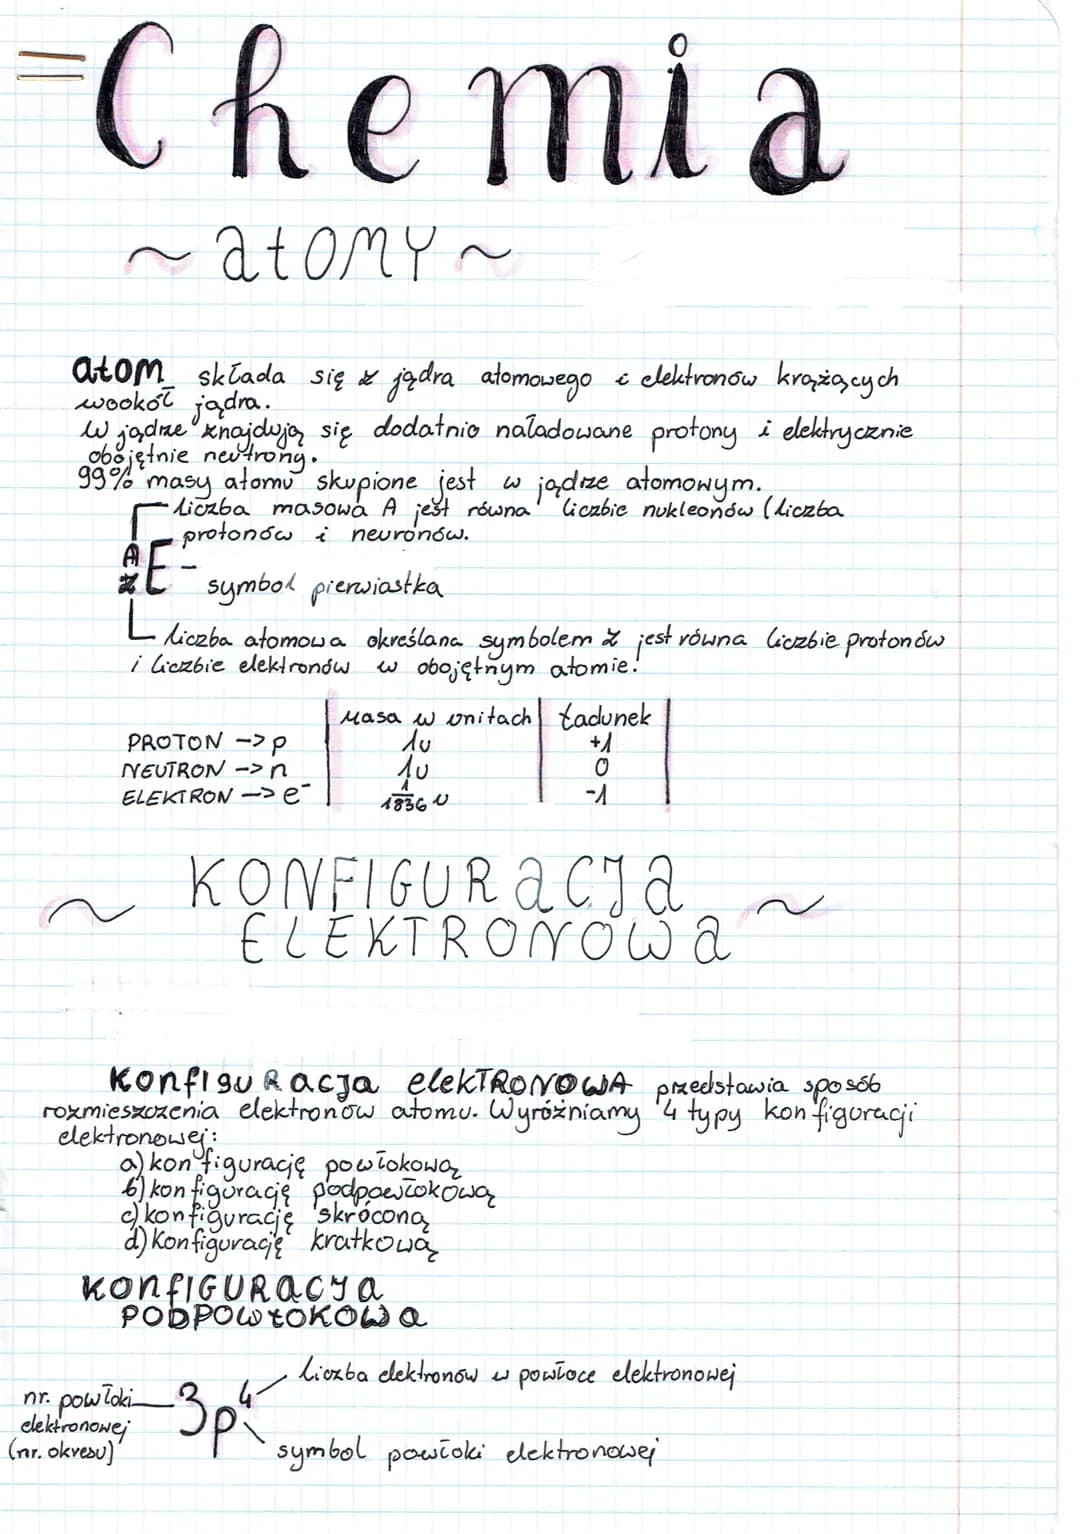 Chemia
~ atomy ~
atom składa się z jądra atomowego i elektronów krążących
wookół jądra.
W jądrze znajdują się dodatnio naładowane protony i elektrycznie
obojętnie neutrony.
99% masy atomu skupione jest w jądrze atomowym.
liczba masowa A jest równa liczbie nukleonów (liczba
protonów i neuronów.
A
Z E - symbol pierwiastka
liczba atomowa określana symbolem Z jest równa liczbie protonów
i liczbie elektronów w obojętnym atomie.
Masa w unitach Ładunek
PROTON -> p 1u +1
NEUTRON -> n 1u 0
ELEKTRON -> e⁻ 1/1836 u -1
~ KONFIGURacJa ~
ELEKTRONOWa
KonfiguRacja elekTRONOWA przedstawia sposób
rozmieszczenia elektronów atomu. Wyróżniamy 4 typy konfiguracji
elektronowej:
a) konfigurację powłokową
b) konfigurację podpowłokową
c) konfigurację skróconą
d) Konfigurację kratkową
KonfIGURacja
PODPOWŁOKOWa
liczba elektronów w powłoce elektronowej
nr. powłoki
elektronowej
(nr. okresu)
3p⁴
symbol powłoki elektronowej